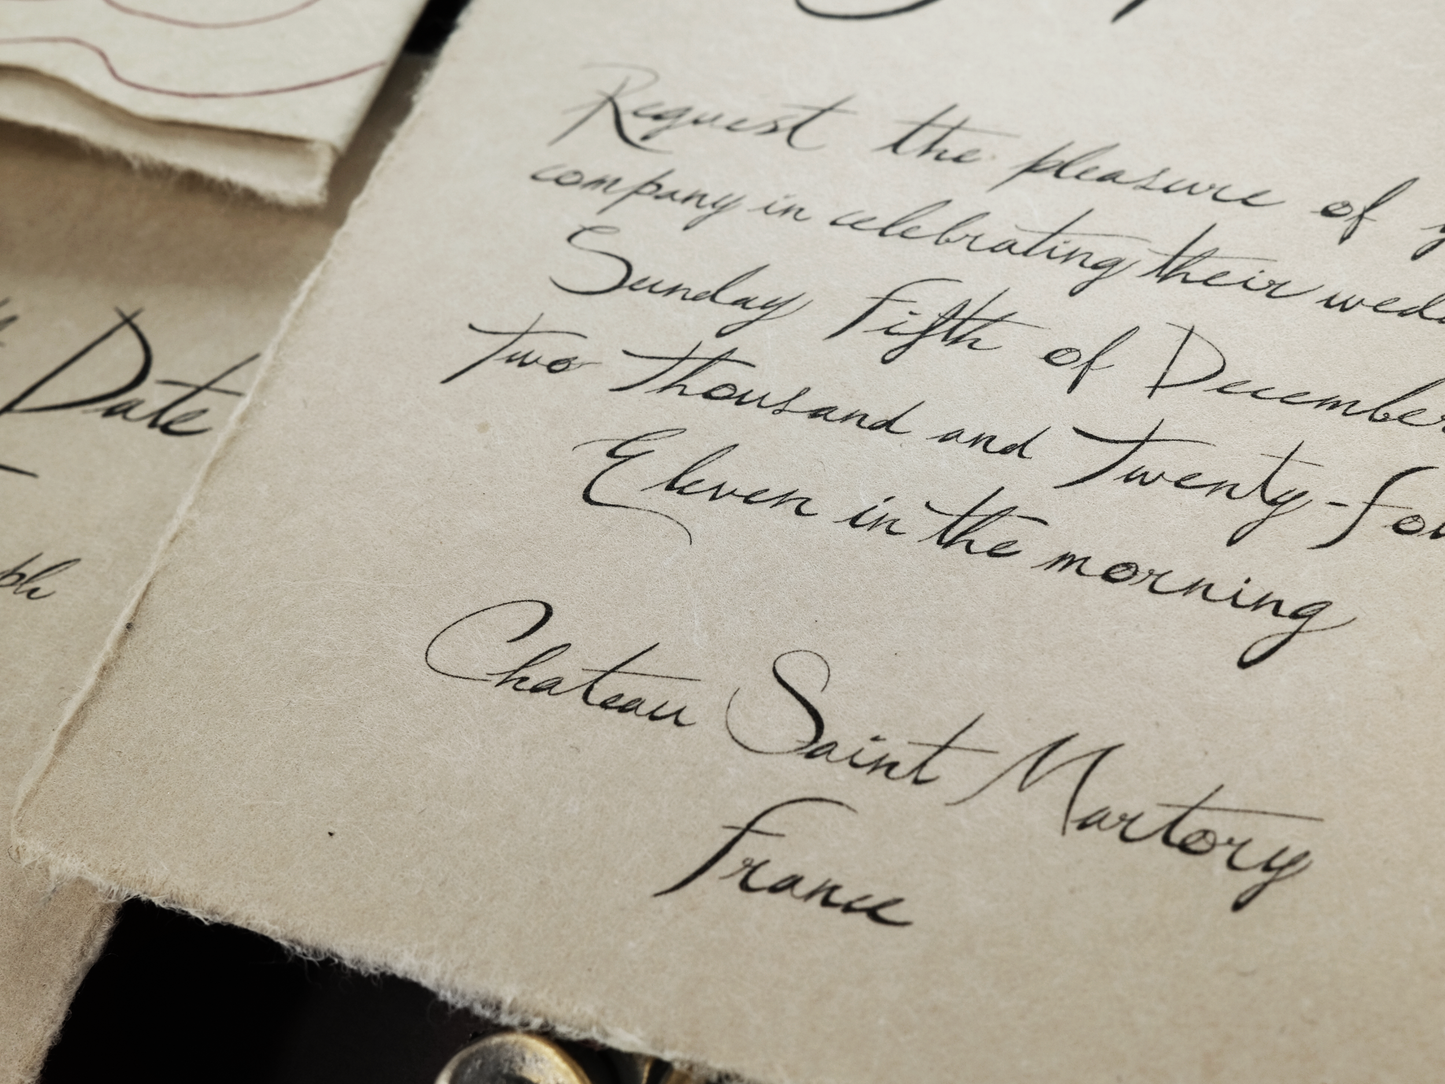 Request the pleasure of
company in celebrating their
Sunday Fifth of December
Two Thousand and Twenty-Fou
Eleven in the morning
Chateau Saint Martory
France
Date
ph